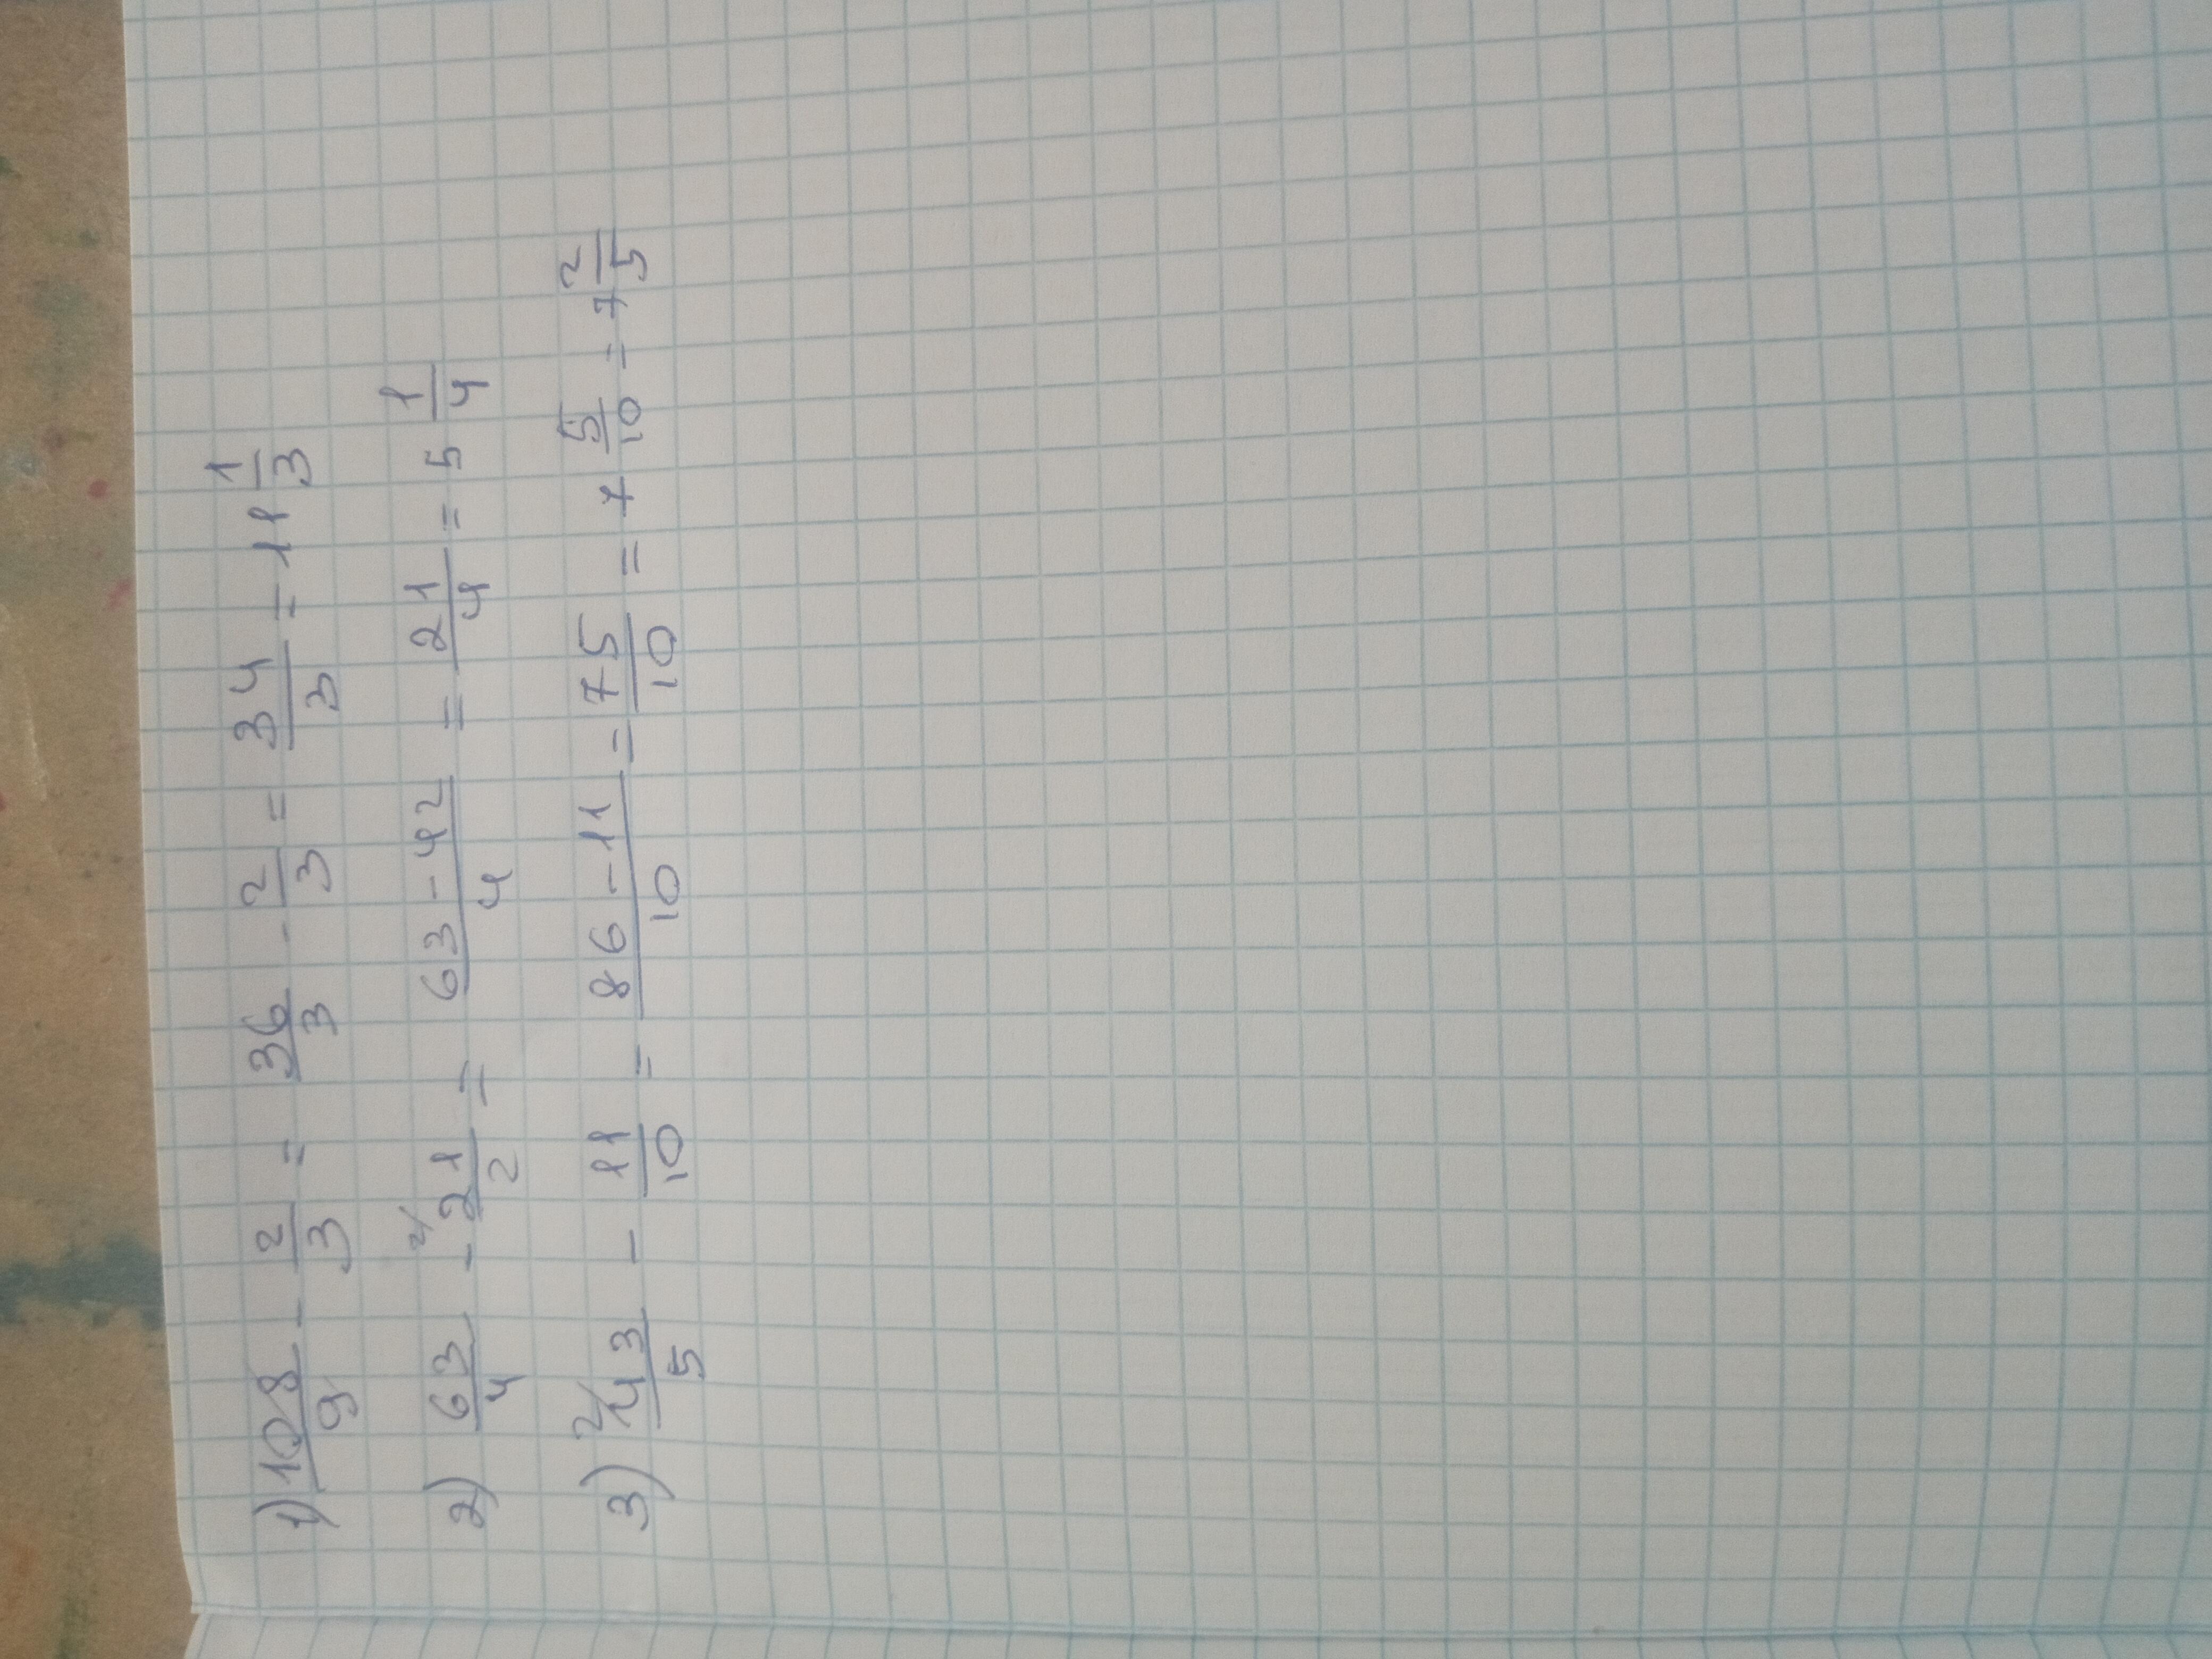 1) 108/9 - 2/3 = 36/3 - 2/3 = 34/3 = 11 1/3
2) 63/4 - 2/ 21/2 = 63-42/4 = 21/4 = 5 1/4
3) 2/ 43/5 - 11/10 = 86-11/10 = 75/10 = 7 5/10 = 7 2/5